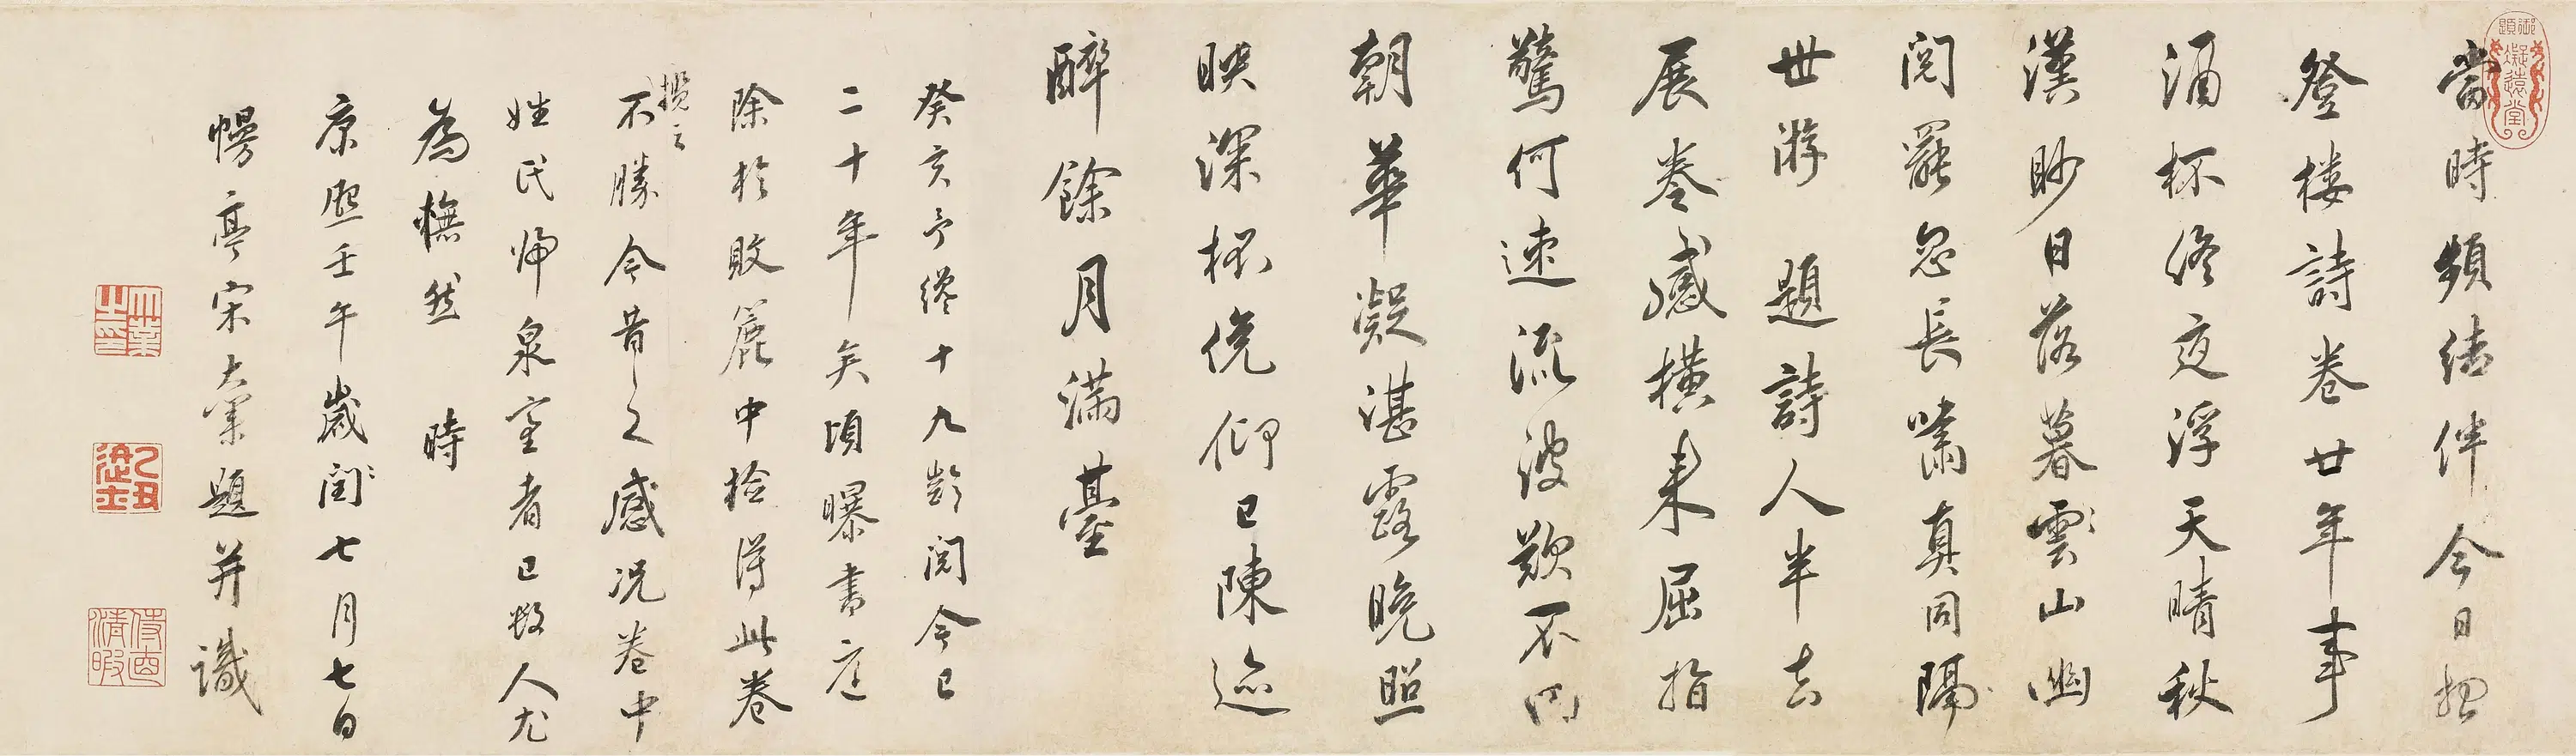 當時頻結伴今日想
登樓詩卷廿年事
酒杯終夜浮天晴秋
漢眇日落暮雲山幽
閱罷忽長嘯真同隔
世游　題詩人半去
展卷感橫來屈指
驚何速流波歎不回
朝華凝湛露晚照
映深杯俛仰已陳迹
醉餘月滿臺
癸亥予纔十九齡閱今已
二十年矣頃曝書庭
除於敗簏中拾得此卷
攬之
不勝今昔之感況卷中
姓氏如帰泉室者已故人尤
為憮然　時
康熙壬午歲閏七月七日
幔亭宋大業題并識
御題
凝遠堂
大業之印
侍直清暇